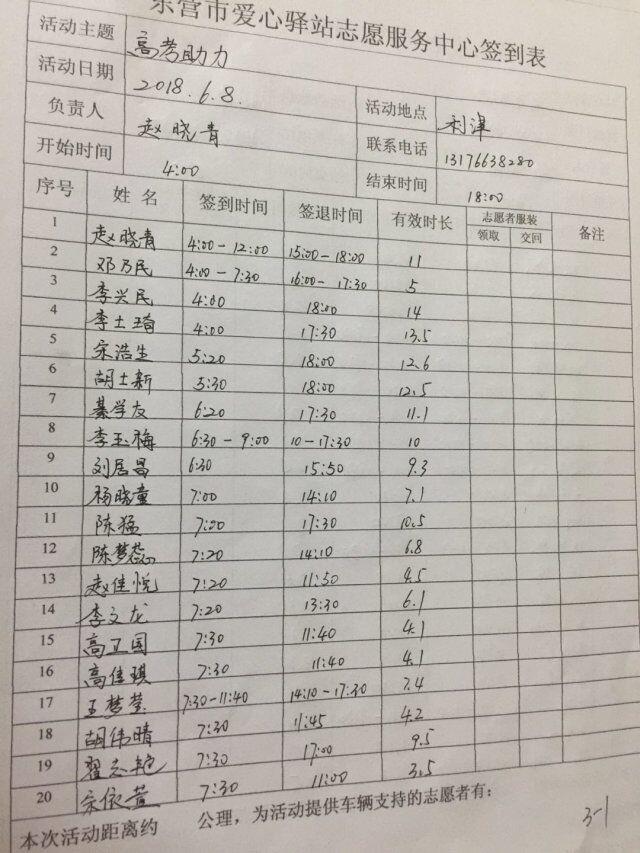 东营市爱心驿站志愿服务中心签到表
活动主题 高考助力
活动日期 2018.6.8. 活动地点 利津
负责人 赵晓青 联系电话 13176638280
开始时间 4:00 结束时间 18:00
序号 姓名 签到时间 签退时间 有效时长 志愿者服装 备注
领取 交回
1 赵晓青 4:00-12:00 15:00-18:00 11
2 邓乃民 4:00-7:30 16:00-17:30 5
3 李兴民 4:00 18:00 14
4 李士琦 4:00 17:30 13.5
5 宋浩生 5:20 18:00 12.6
6 胡士新 5:30 18:00 12.5
7 綦学友 6:20 17:30 11.1
8 李玉梅 6:30-9:00 10-17:30 10
9 刘居昌 6:30 15:50 9.3
10 杨晓童 7:00 14:10 7.1
11 陈猛 7:00 17:30 10.5
12 陈梦蕊 7:20 14:10 6.8
13 赵佳悦 7:20 11:50 4.5
14 李文龙 7:20 13:30 6.1
15 高卫国 7:30 11:40 4.1
16 高佳琪 7:30 11:40 4.1
17 王梦莹 7:30-11:40 14:10-17:30 7.4
18 胡伟晴 7:30 11:45 4.2
19 翟志艳 7:30 17:00 9.5
20 宋依萱 7:30 11:00 3.5
本次活动距离约 公理，为活动提供车辆支持的志愿者有：
3-1